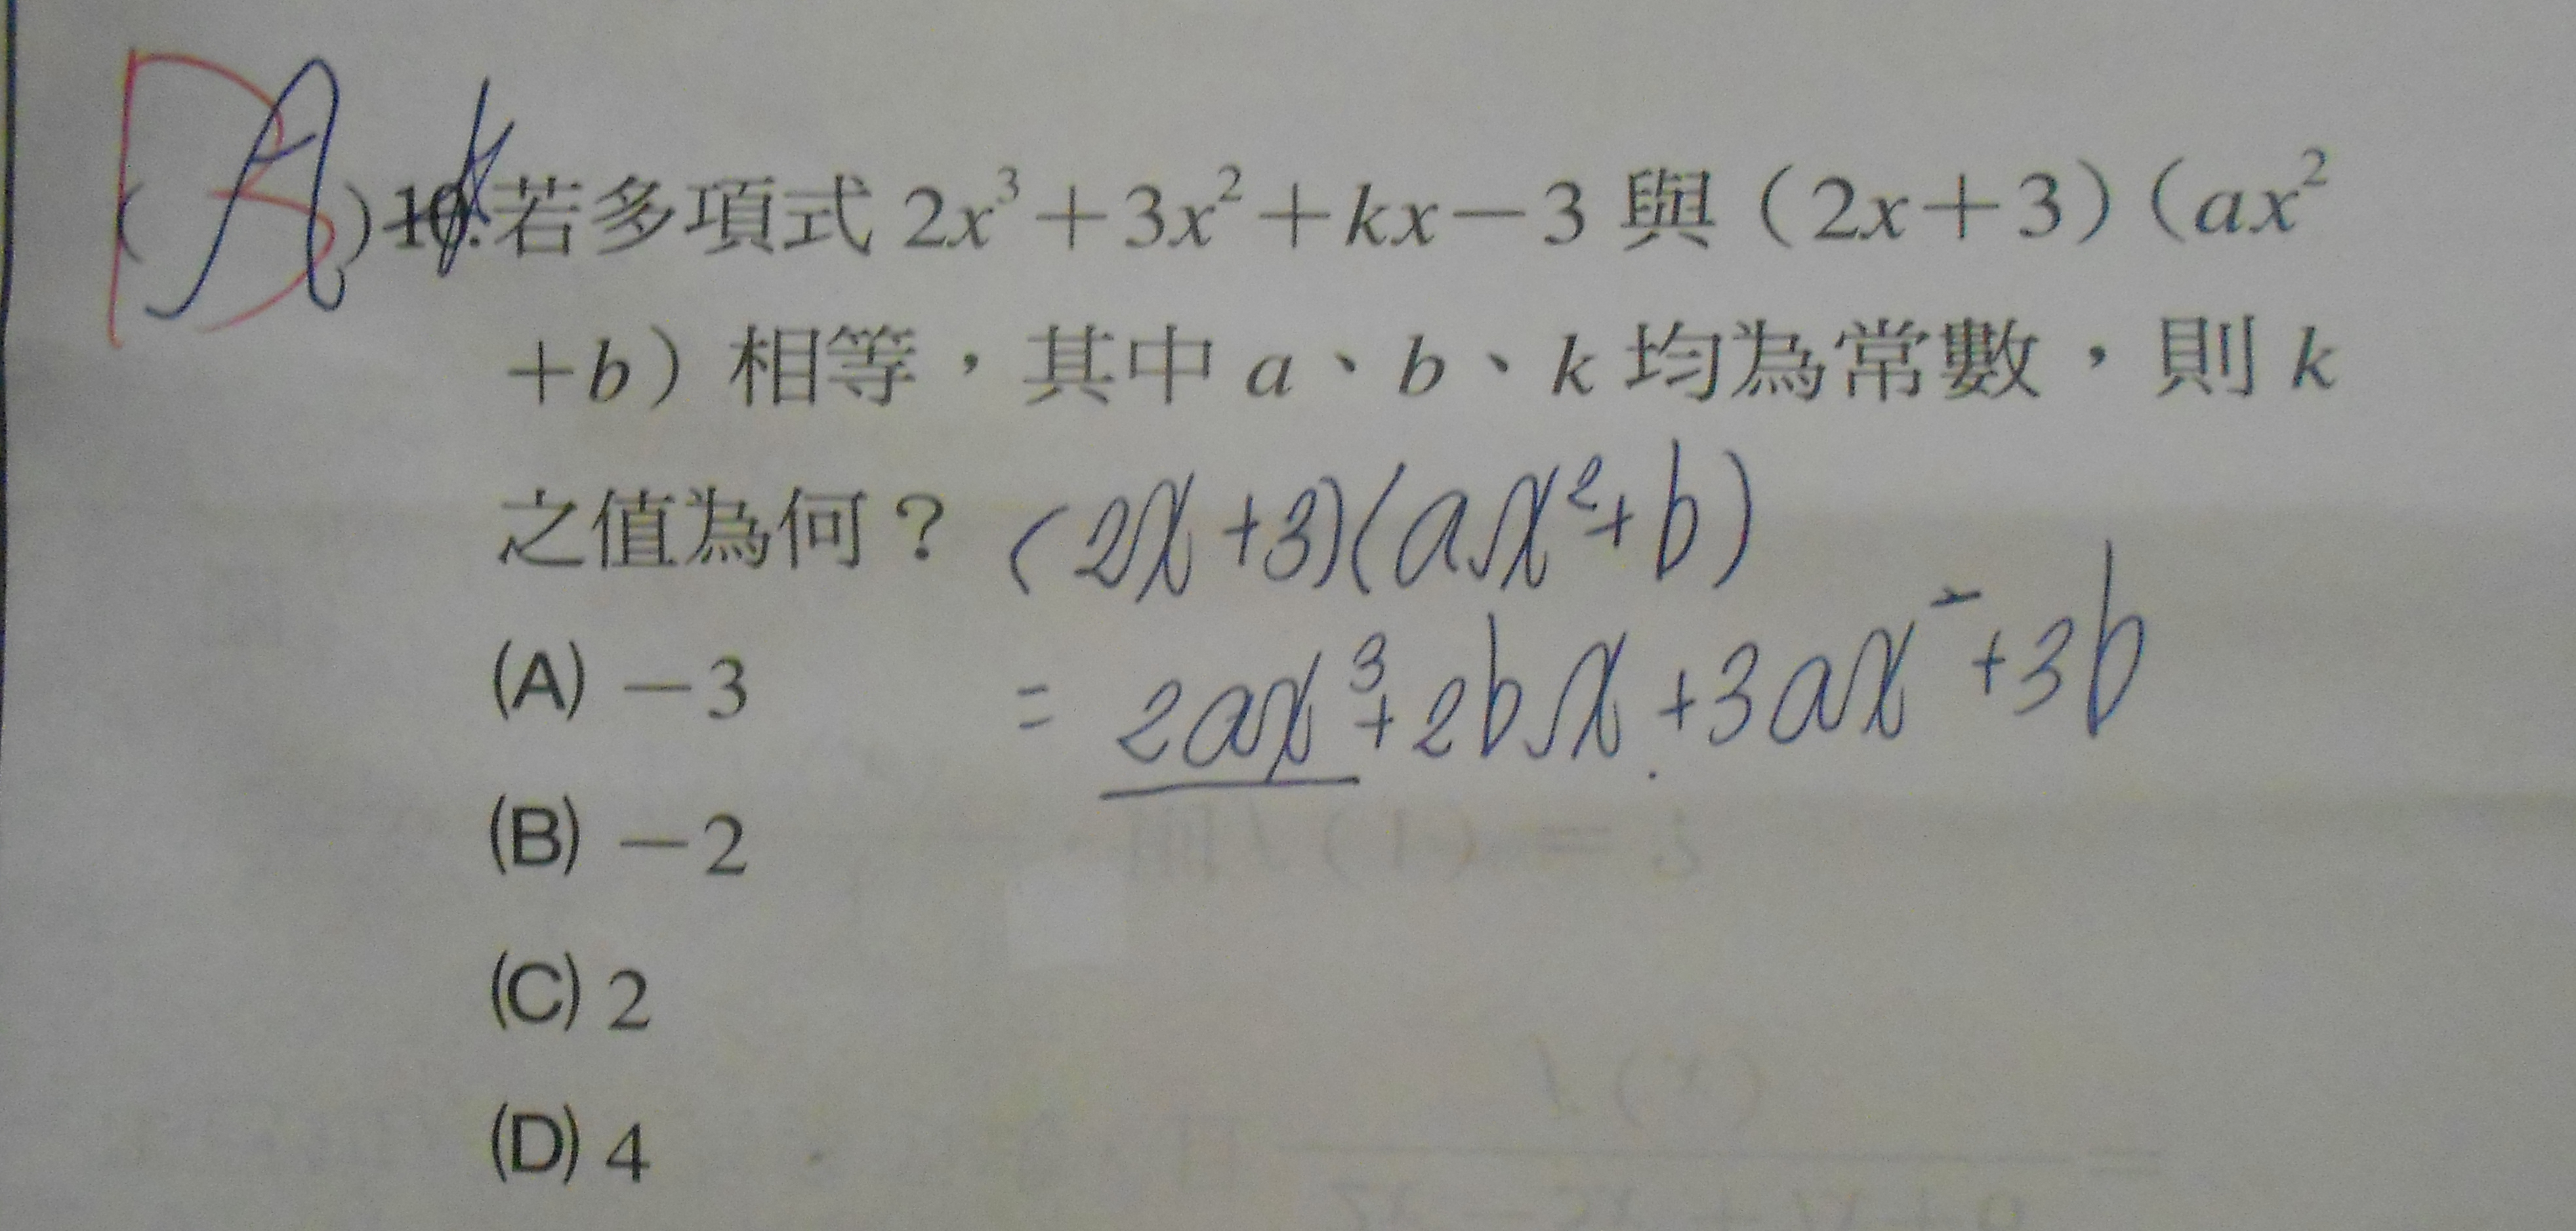 (A)10.若多項式 2x³+3x²+kx-3 與（2x+3）（ax²
B
+b）相等，其中 a、b、k 均為常數，則 k
之值為何？ (2x+3)(ax²+b)
(A) -3 = 2ax³+2bx+3ax²+3b
(B) -2
(C) 2
(D) 4